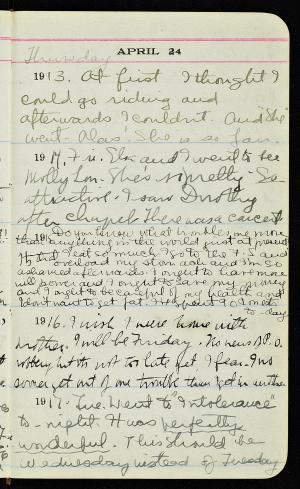 APRIL 24
Thursday
1913. At first I thought I
could go riding and
afterwards I couldn't. And "She"
went. Alas! She is so fair.
1914. Fri. and I went to see
Molly Lou. She's so pretty. So
attractive. I saw Dorothy
after chapel. There was a concert
19 Do you know what troubles me more
than anything in the world just at present
It's that I eat so much. I go to the and
overload my stomach and I'm so
ashamed afterwards. I ought to have more
will power and I ought to save my money
and I ought to be careful of my health and
I don't want to get fat. Help me
to-day
1916. I wish I were home with
mother. I will be Friday. No news of P.O.
robbery but it's not too late yet, I fear. I no
sooner get out of one trouble than I get in another
1917. Tue. Went to "Intolerance"
to-night. It was perfectly
wonderful. This should be
Wednesday instead of Tuesday